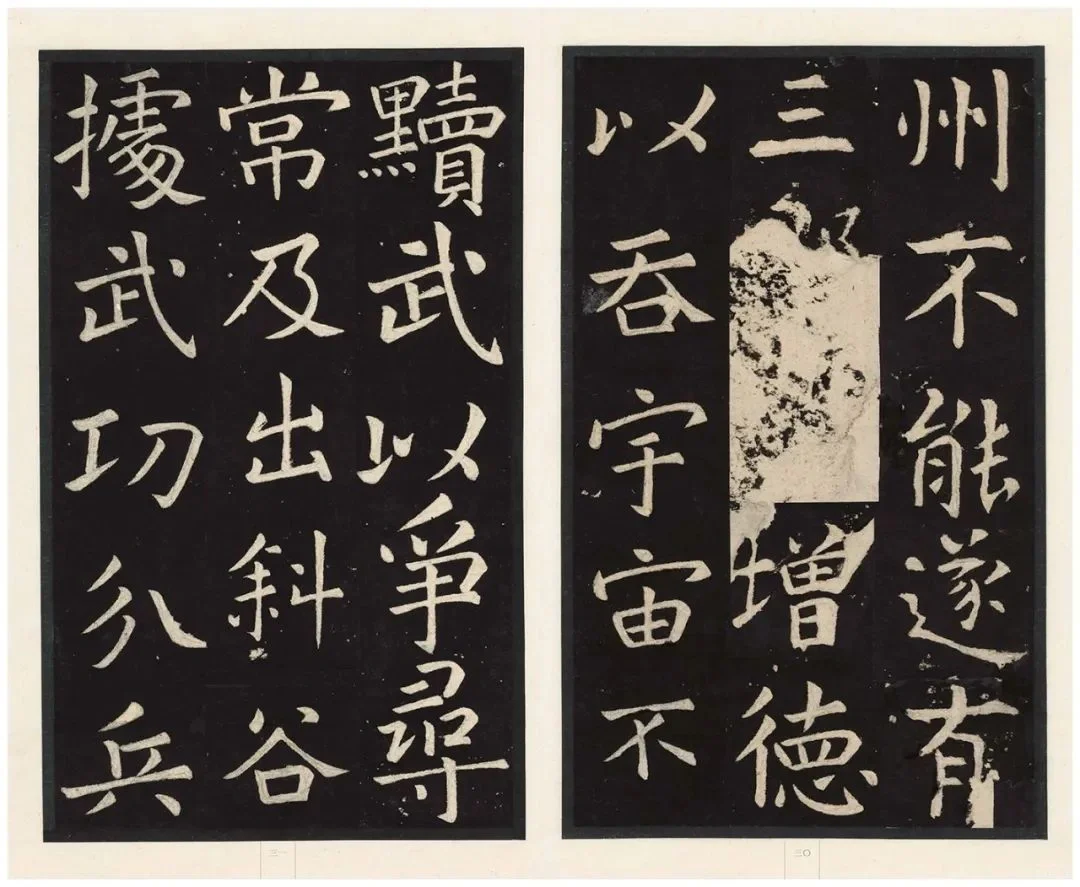 州不能遂有
三增德
以吞宇宙不
三〇
黷武以爭尋
常及出斜谷
據武功分兵
三一